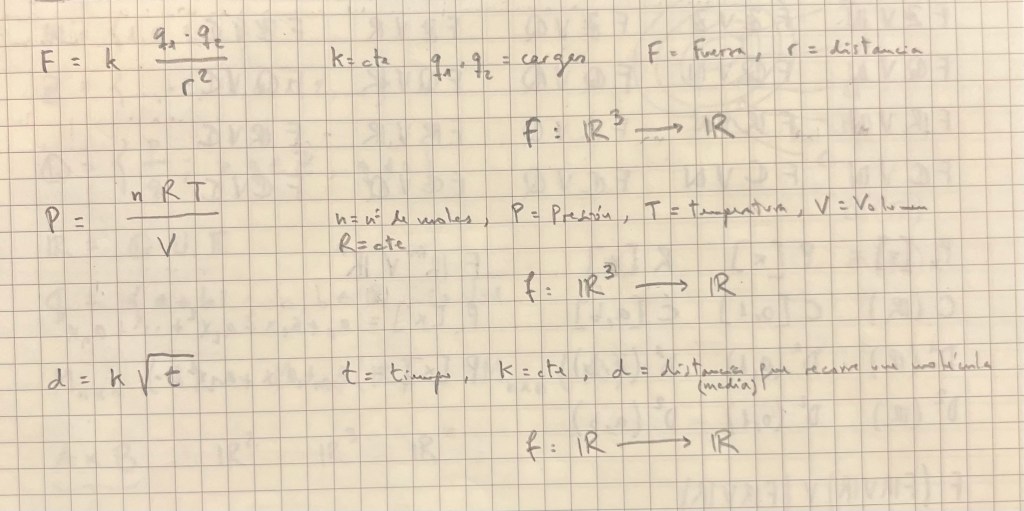 F = k q₁ · q₂ / r² k = cte q₁, q₂ = cargas F = Fuerza, r = distancia
f : ℝ³ → ℝ
P = n R T / V n = nº de moles, P = Presión, T = temperatura, V = Volumen
R = cte
f : ℝ³ → ℝ
d = k √t t = tiempo, k = cte, d = distancia que recorre una molécula
(media)
f : ℝ → ℝ